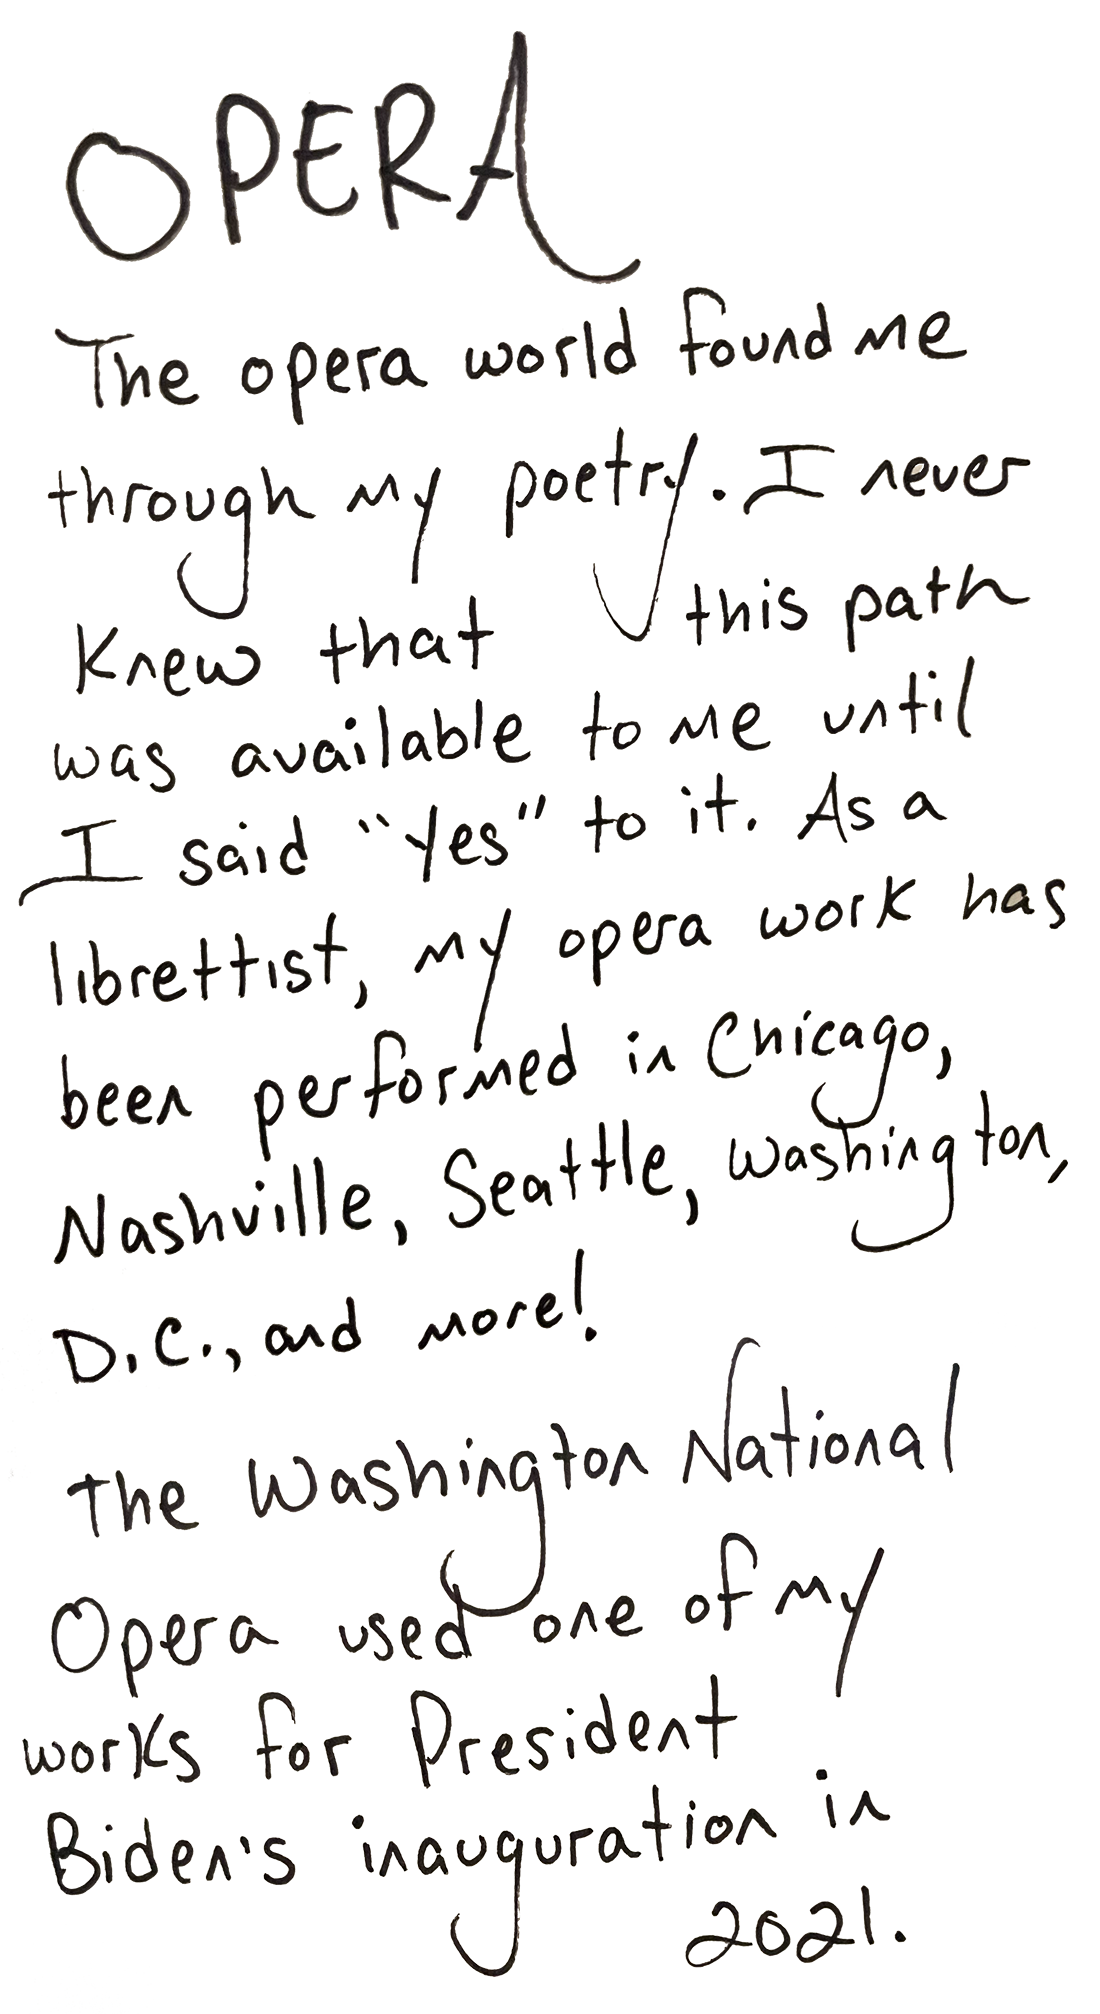 OPERA
The opera world found me
through my poetry. I never
Knew that this path
was available to me until
I said "Yes" to it. As a
librettist, my opera work has
been performed in Chicago,
Nashville, Seattle, Washington,
D.C., and more!
The Washington National
Opera used one of my
works for President
Biden's inauguration in
2021.